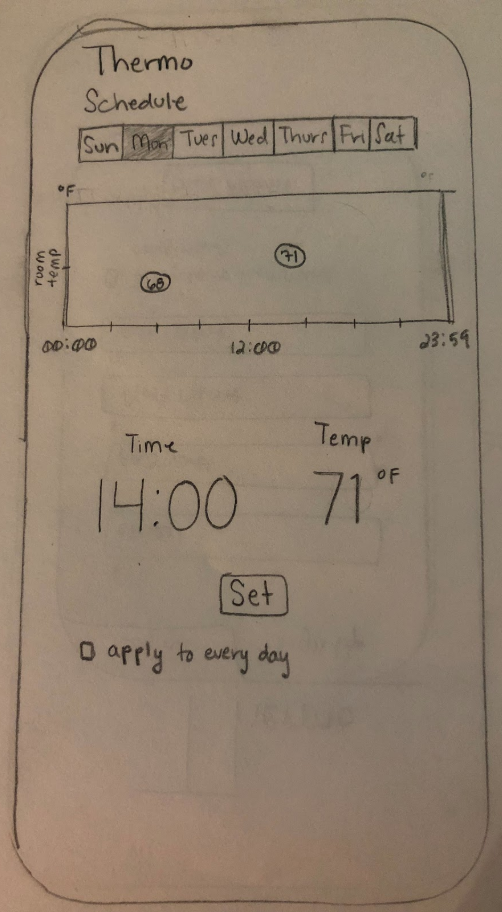 Thermo
Schedule
Sun Mon Tues Wed Thurs Fri Sat
°F
room temp
71
68
00:00 12:00 23:59
Time Temp
14:00 71 °F
Set
apply to every day